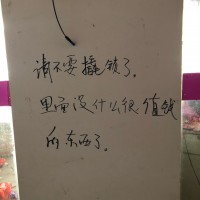 请不要撬锁了.
里面没什么很值钱
的东西了.